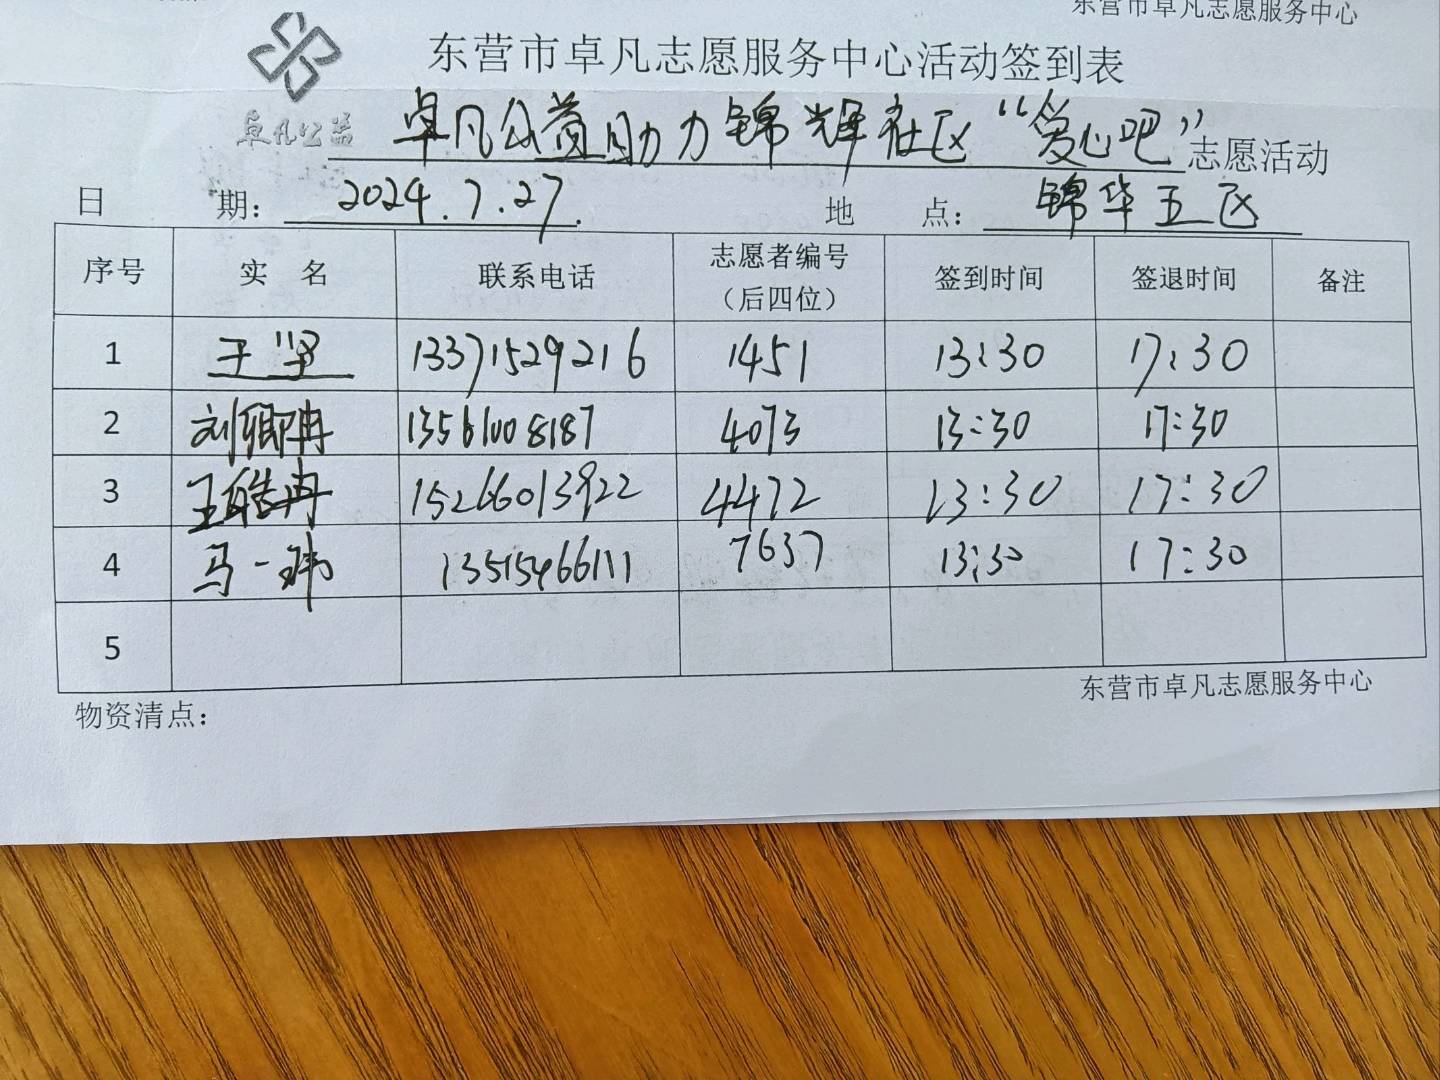 东营市卓凡志愿服务中心
东营市卓凡志愿服务中心活动签到表
卓凡公益
卓凡公益助力锦辉社区“爱心吧”志愿活动
日 期：2024.7.27. 地 点：锦华五区
序号 实 名 联系电话 志愿者编号（后四位） 签到时间 签退时间 备注
1 13371529216 1451 13:30 17:30
2 刘卿冉 13561008187 4073 13:30 17:30
3 王皓冉 15266013922 4472 13:30 17:30
4 马一玮 13515466111 7637 13:30 17:30
5
东营市卓凡志愿服务中心
物资清点：